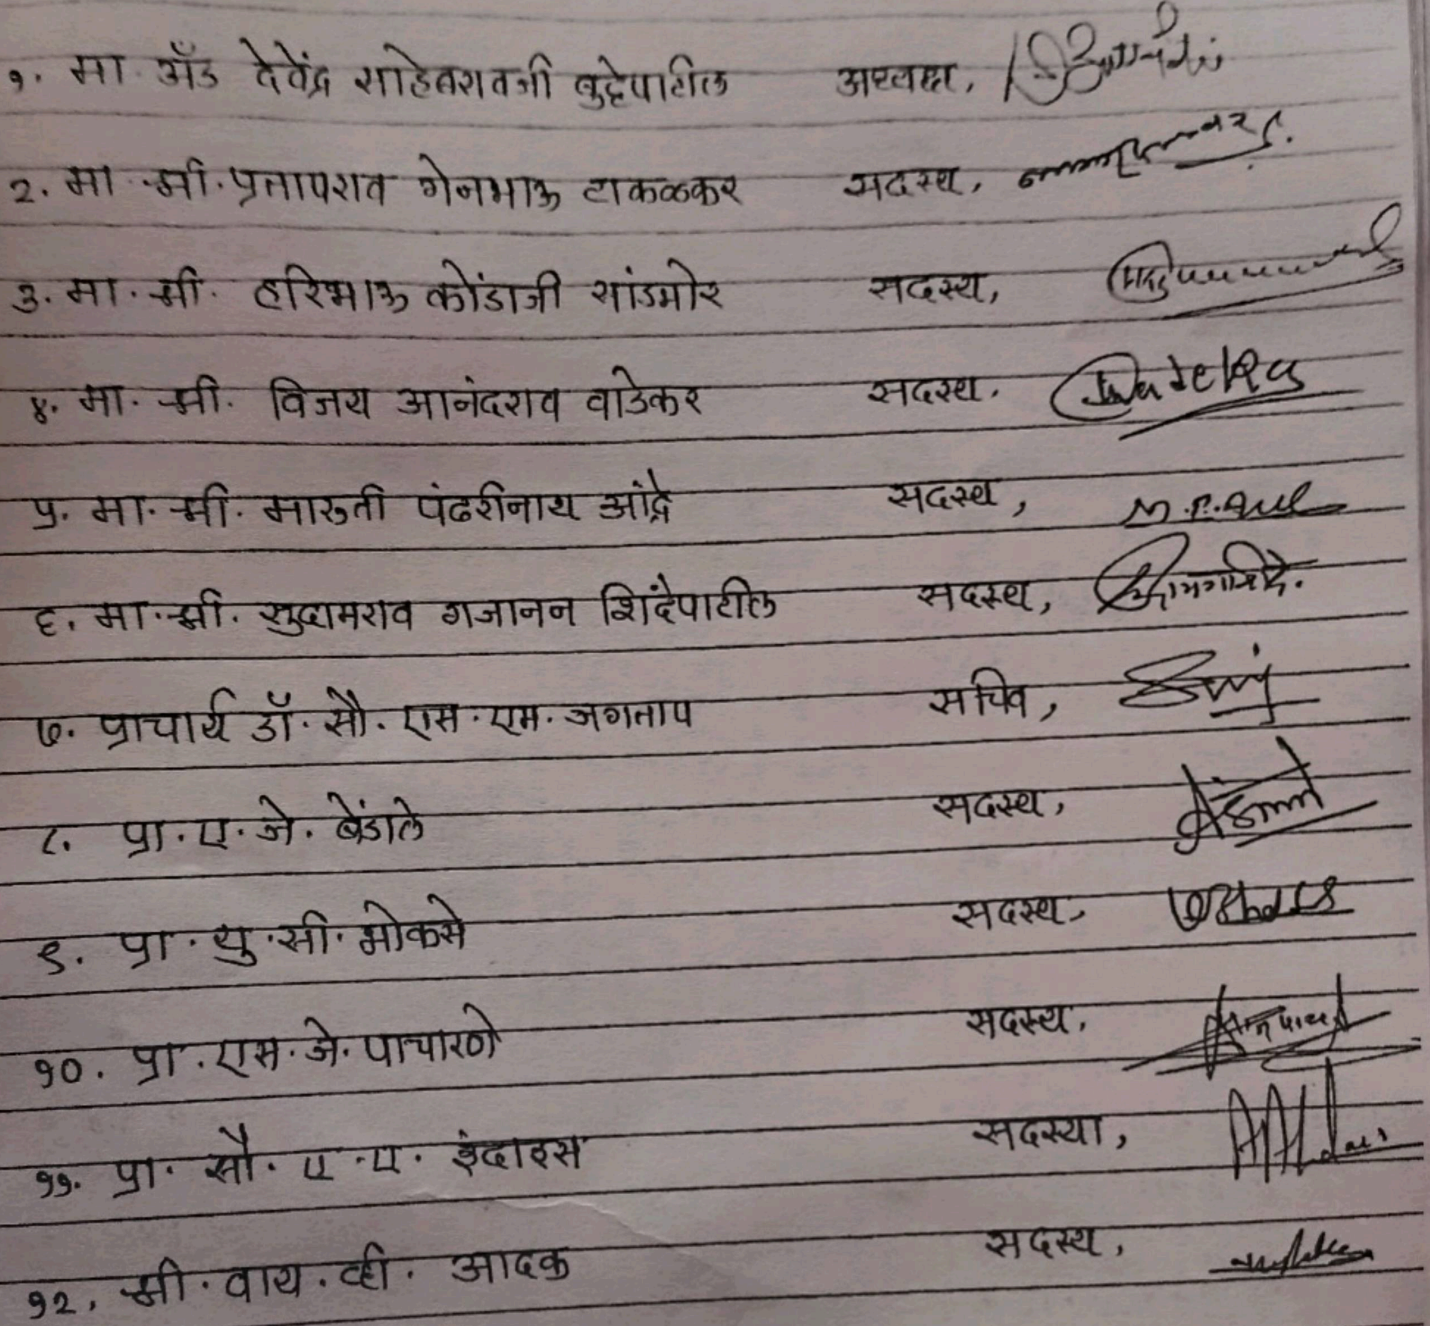 १. मा. अ‍ॅड देवेंद्र साहेबरावजी बुट्टेपाटील अध्यक्ष,
२. मा. श्री. प्रतापराव गेनभाऊ टाकळकर सदस्य,
३. मा. श्री. हरिभाऊ कोंडाजी सांडभोर सदस्य,
४. मा. श्री. विजय आनंदराव वाडेकर सदस्य.
५. मा. श्री. मारुती पंढरीनाथ आंद्रे सदस्य,
६. मा. श्री. सुदामराव गजानन शिंदेपाटील सदस्य,
७. प्राचार्य डॉ. सौ. एस. एम. जगताप सचिव,
८. प्रा. ए. जे. बेंडाले सदस्य,
९. प्रा. यु. सी. भोकसे सदस्य,
१०. प्रा. एस. जे. पाचारणे सदस्य,
११. प्रा. सौ. ए. ए. इंदारस सदस्या,
१२. श्री. वाय. व्ही. आदक सदस्य,